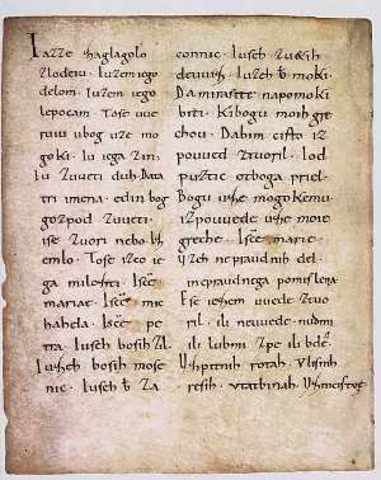 Iazze zaglagolo
zlodeiu. Iuzem iego
delom. Iuzem iego
lepocam. Tose uue
ruiu ubog uze mo
goki. Iu iega zin.
Iu zuueti duh. Data
tri imena. edin bog
gozpod zuueti.
ise zuori nebo. Iz
emlo. Tose izco ie
ga milozti. Isce
mariae. Isce mic
hahela. Isce pe
tra. Iuseh bosih zil.
Iuzeh bosih mose
nic. Iuseh b za
connic. Iuseh zuetih
deuuiz. Iuzeh b moki.
Da mirasete napomoki
biti. Kibogu moih gre
chou. Dabim cisto iz
pouued ztuoril. Iod
puztic otboga priel.
Bogu uze mogokemu.
izpouuede uze moie
greche. Isce marie.
uzeh nepraudnih del.
inepraudnega pomislena.
Ese iezem uuede ztuo
ril. ili neuuede. nudmi
ili lubmi zpe ili bde.
Uzpitnih rotah. Vlisnih
resih. Vtatbinah. Uzmeistoc